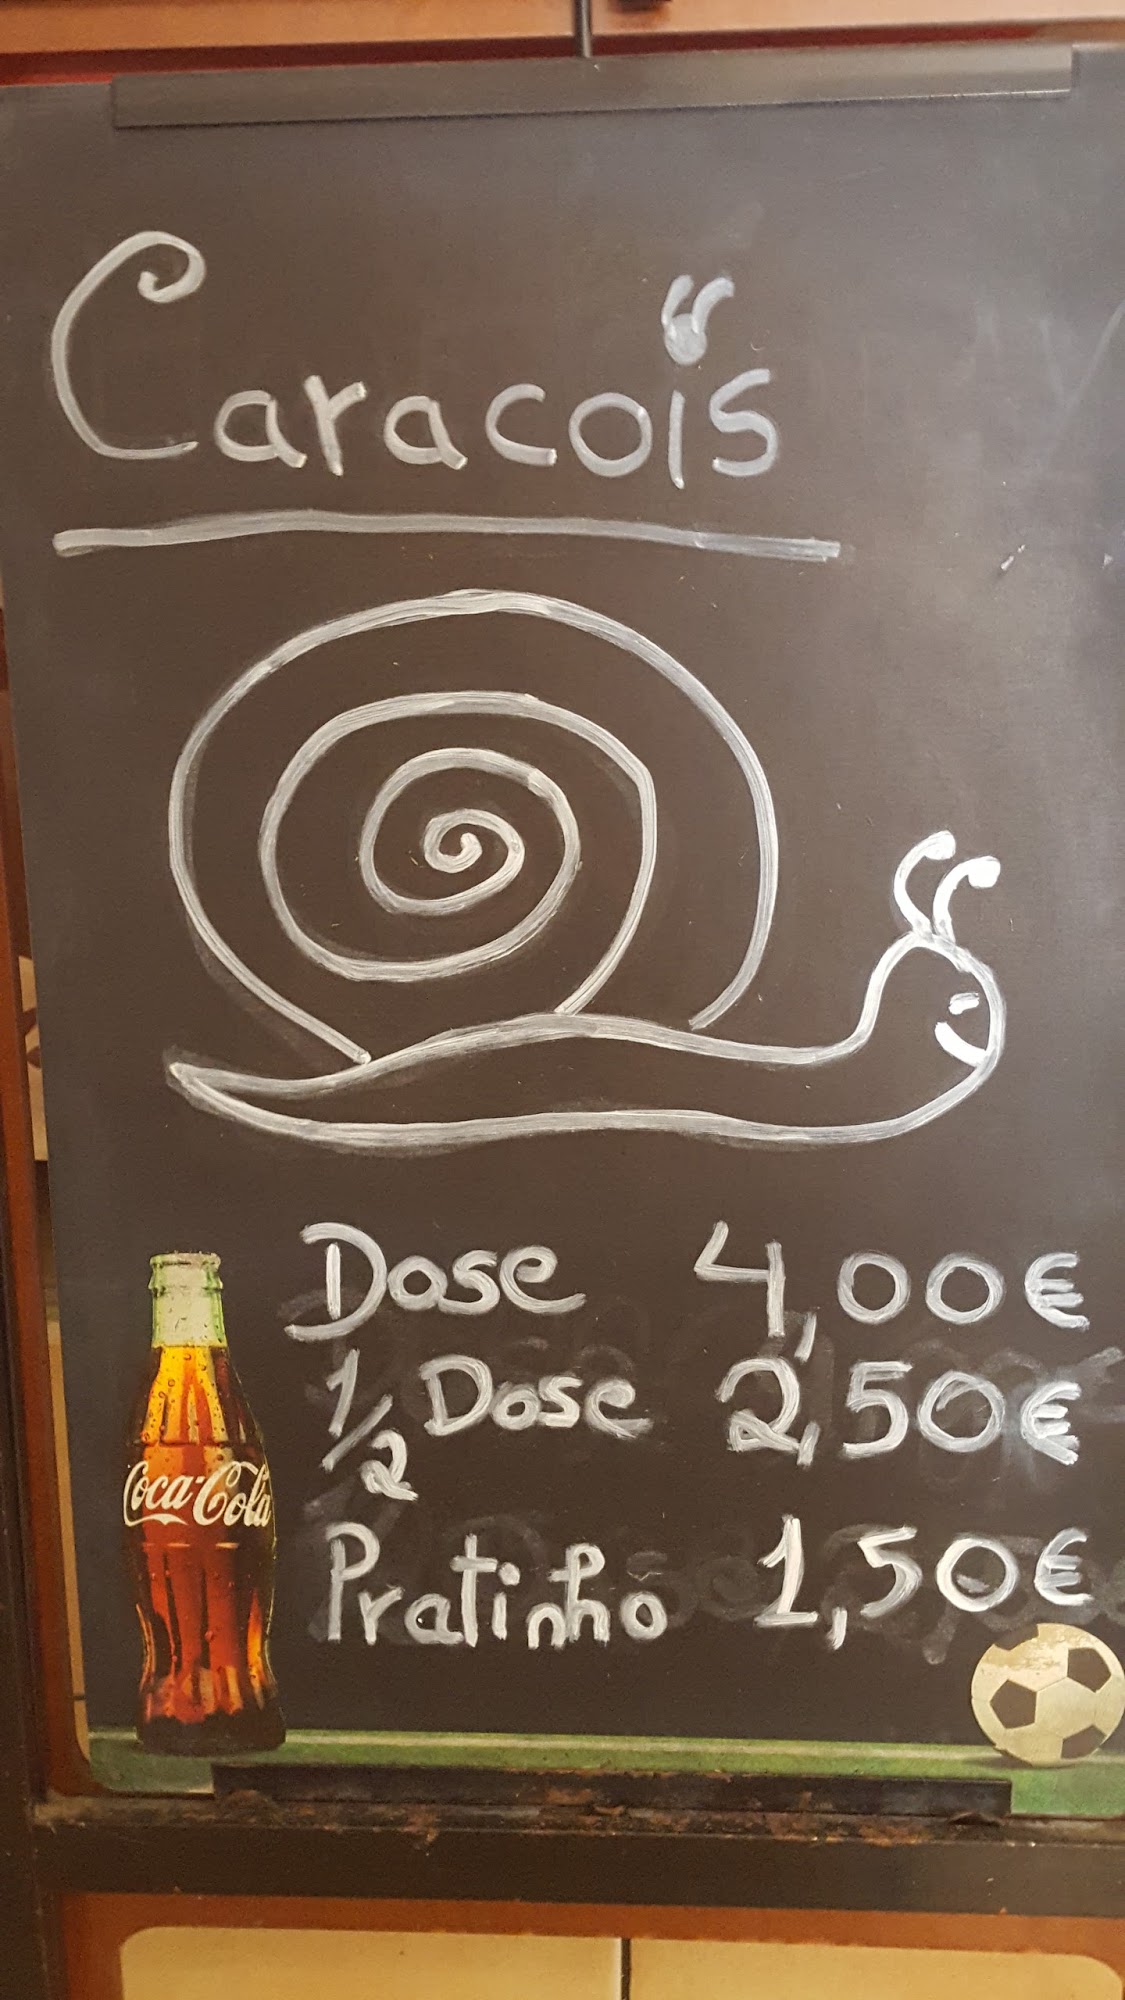 Caracois
Dose 4,00€
1/2 Dose 2,50€
Pratinho 1,50€
Coca-Cola